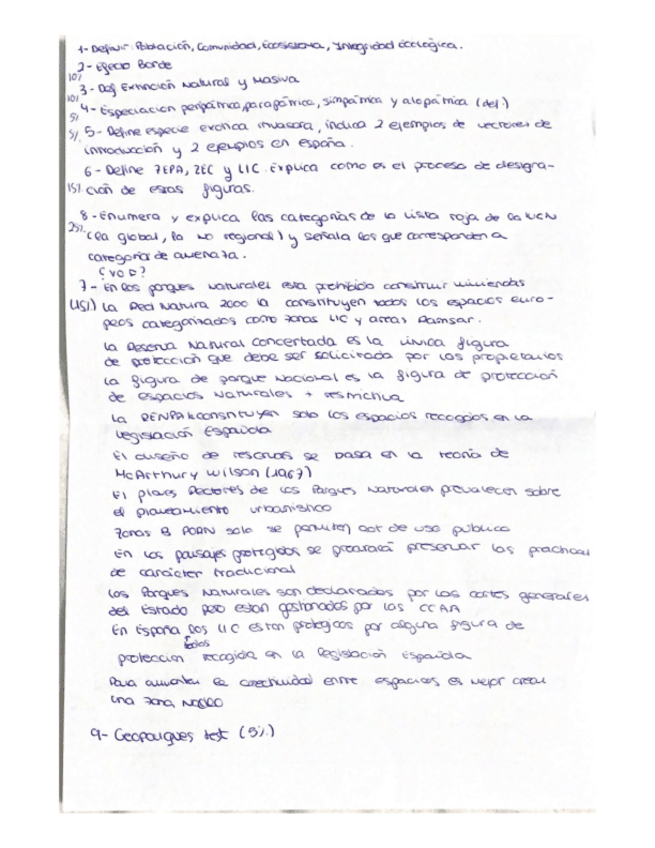 1- Definir: Población, Comunidad, Ecosistema, Integridad Ecológica.
2- Efecto Borde
10% 3- Def Extinción Natural y Masiva
10% 4- Especiación peripátrica, parapátrica, simpátrica y alopátrica (def.)
5%
5% 5- Define especie exótica invasora, indica 2 ejemplos de vectores de
introducción y 2 ejemplos en españa.
6- Define ZEPA, ZEC y LIC. Explica como es el proceso de designa-
15% ción de estas figuras.
8- Enumera y explica las categorías de la lista roja de la UICN
25% (la global, la no regional) y señala los que corresponden a
categoría de amenaza.
¿V o F?
7- En los parques naturales esta prohibido construir viviendas
(15%) La Red Natura 2000 la constituyen todos los espacios euro-
peos categorizados como zonas LIC y areas Ramsar.
La Reserva Natural Concertada es la única figura
de protección que debe ser solicitada por los propietarios
La figura de parque Nacional es la figura de protección
de espacios Naturales + restrictiva
La RENPA la constituyen solo los espacios recogidos en la
legislación Española
El diseño de reservas se basa en la teoría de
McArthur y Wilson (1967)
El planes Rectores de los Parques Naturales prevalecen sobre
el planeamiento urbanístico
Zonas B PORN solo se permiten act de uso público
En los paisajes protegidos se procurará preservar las prácticas
de carácter tradicional
Los Parques Naturales son declarados por las cortes generales
del Estado pero estan gestionados por las CCAA
En España los LIC estan protegidos por alguna figura de
todos
protección recogida en la legislación Española
Para aumentar la conectividad entre espacios es mejor crear
una zona núcleo
9- Geoparques test (5%)